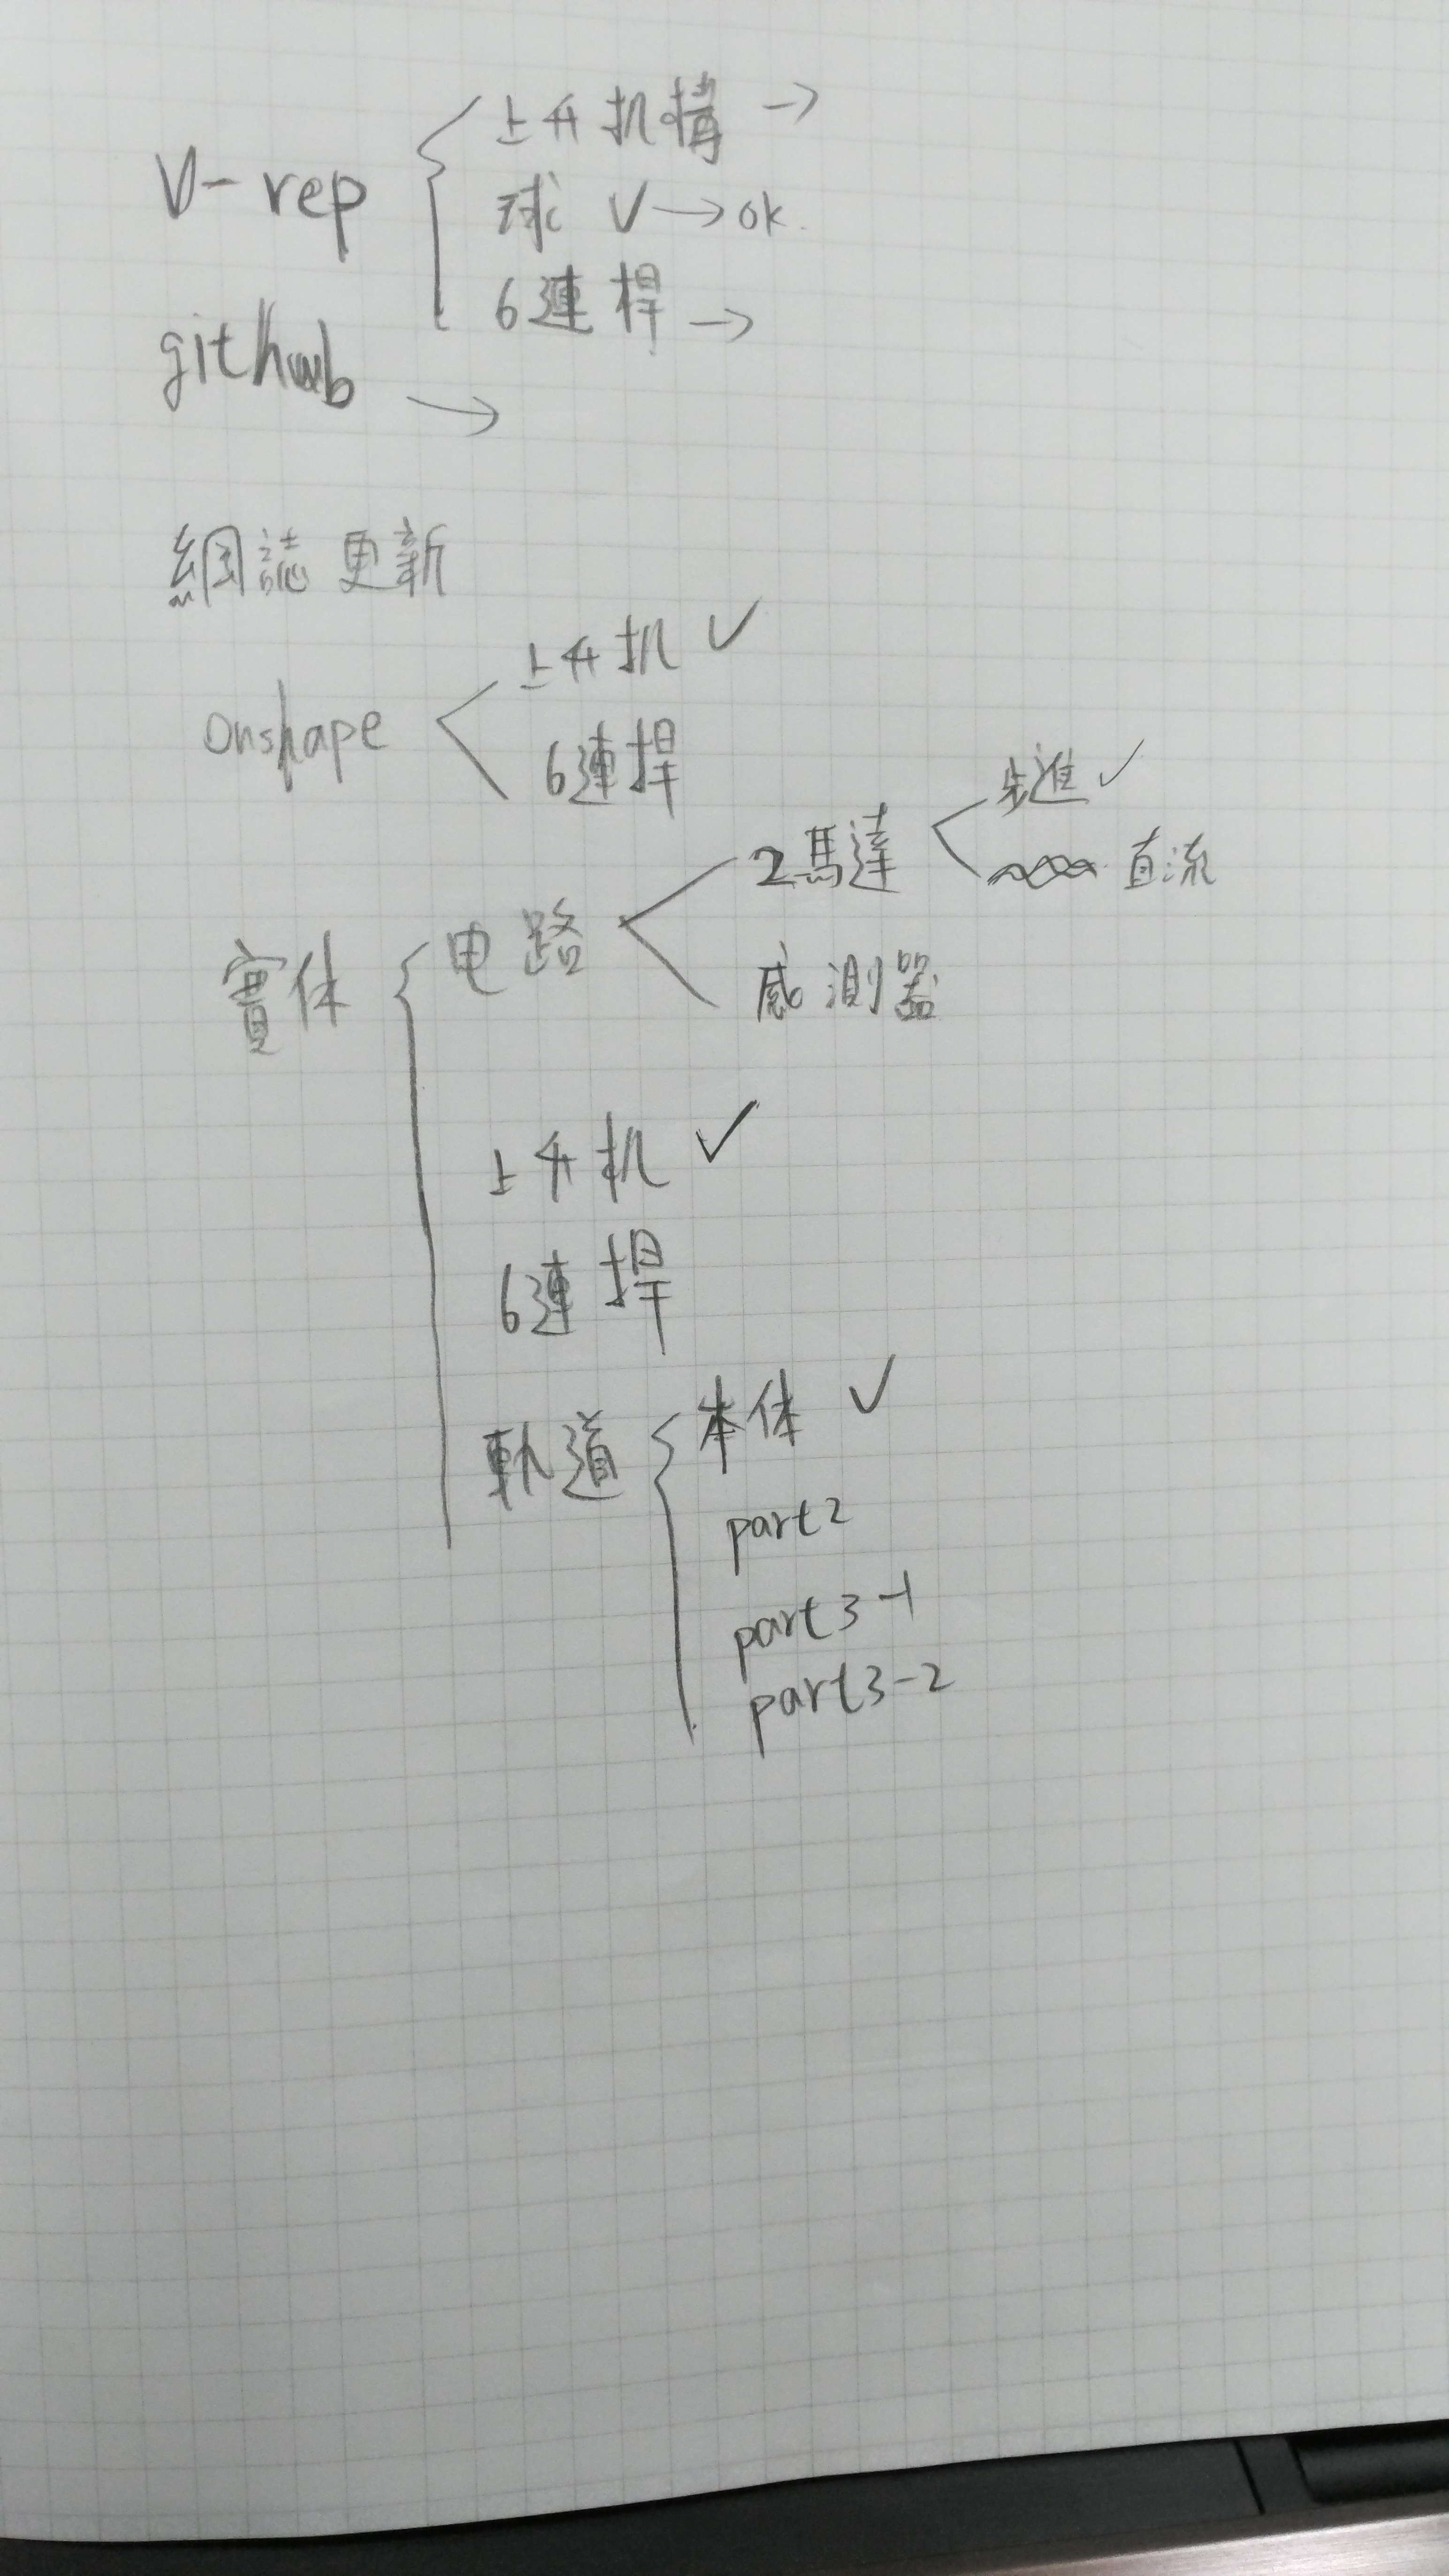 V-rep
上升机構 →
球 V→ok.
6連桿 →
github →
網誌更新
onshape
上升机 ✓
6連桿
實体
电路
2馬達
步進 ✓
直流
感測器
上升机 ✓
6連桿
軌道
本体 ✓
part2
part3-1
part3-2